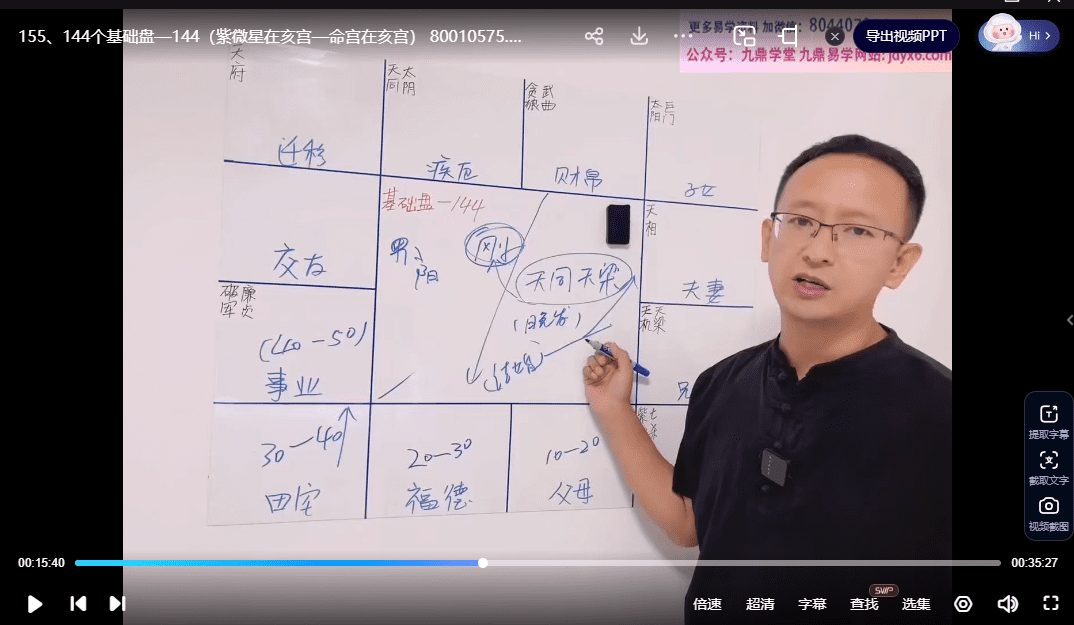 155、144个基础盘—144（紫微星在亥宫—命宫在亥宫） 80010575....
导出视频PPT
Hi >
公众号：九鼎学堂 九鼎易学网站: jdyx6.com
天府
太阴
天同
武曲
贪狼
巨门
太阳
迁移
疾厄
财帛
子女
基础盘—144
天相
男：阳
天同天梁
交友
夫妻
廉贞
破军
天梁
天机
(40—50)
事业
兄
30—40
20—30
10—20
田宅
福德
父母
提取字幕
截取文字
视频截图
00:15:40
00:35:27
倍速
超清
字幕
查找
SWP
选集